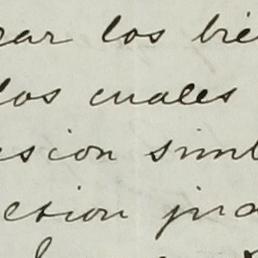 rar los bie
los cuales
esion simb
ection jud